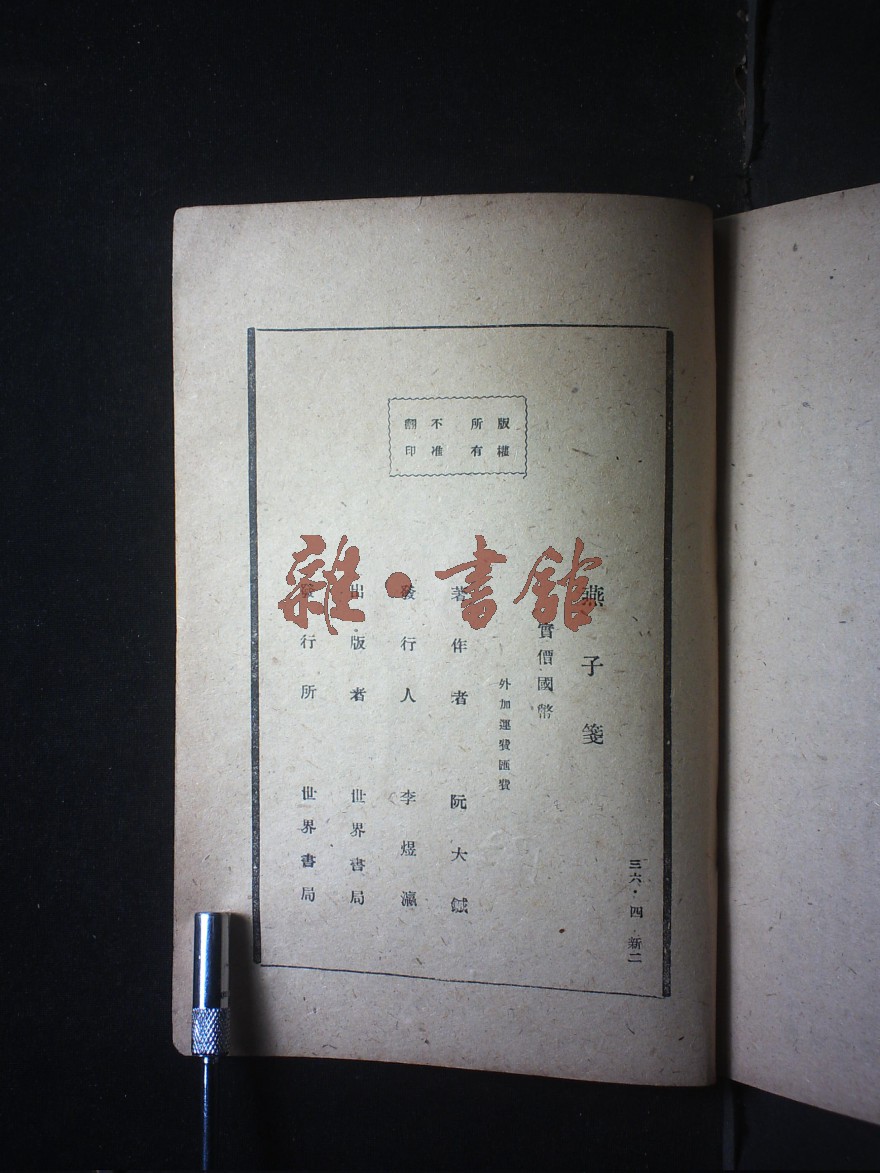 版權
所有
不准
翻印
三六·四·新二
燕子箋
實價國幣
外加運費匯費
著作者 阮大鋮
發行人 李煜瀛
出版者 世界書局
發行所 世界書局
雜·書館